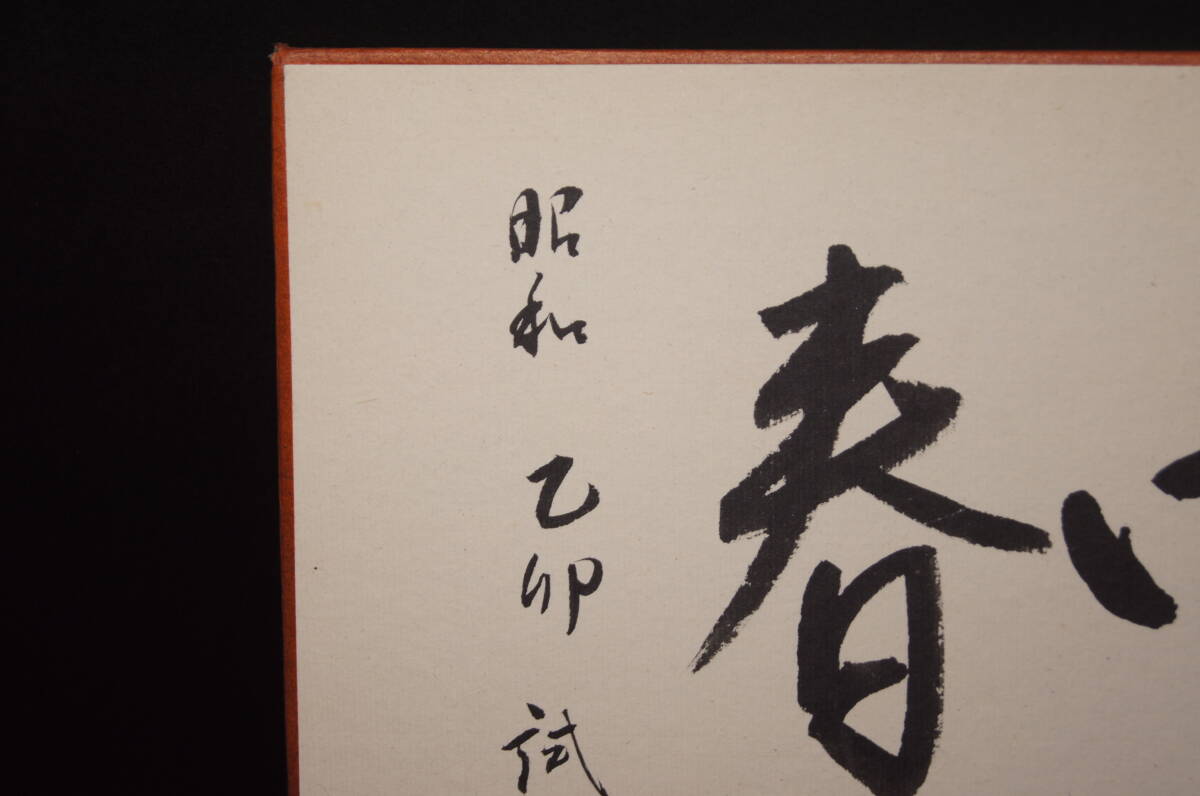 春
昭和 乙卯 試